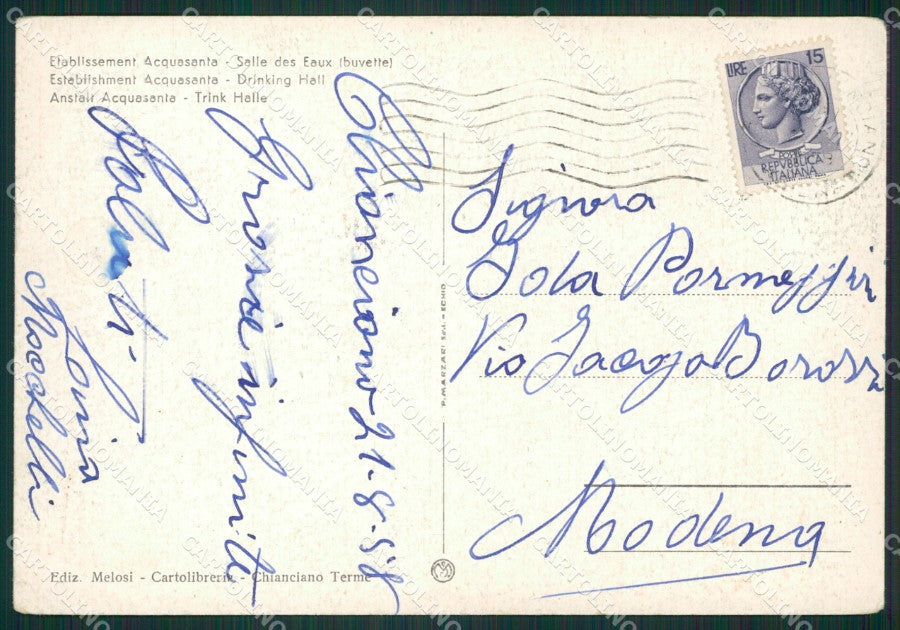 Etablissement Acquasanta - Salle des Eaux (buvette)
Establishment Acquasanta - Drinking Hall
Anstalt Acquasanta - Trink Halle
Chianciano 21-8-58
Grazie infinite
Saluti
Lania
Mocchelli
LIRE 15
POSTE
REPVBBLICA
ITALIANA
Signora
Iola Parmeggiani
Via Jacopo Barozzi
Modena
P. MARZARI S.p.A. - SCHIO
Ediz. Melosi - Cartolibreria - Chianciano Terme
CARTOLINOMANIA